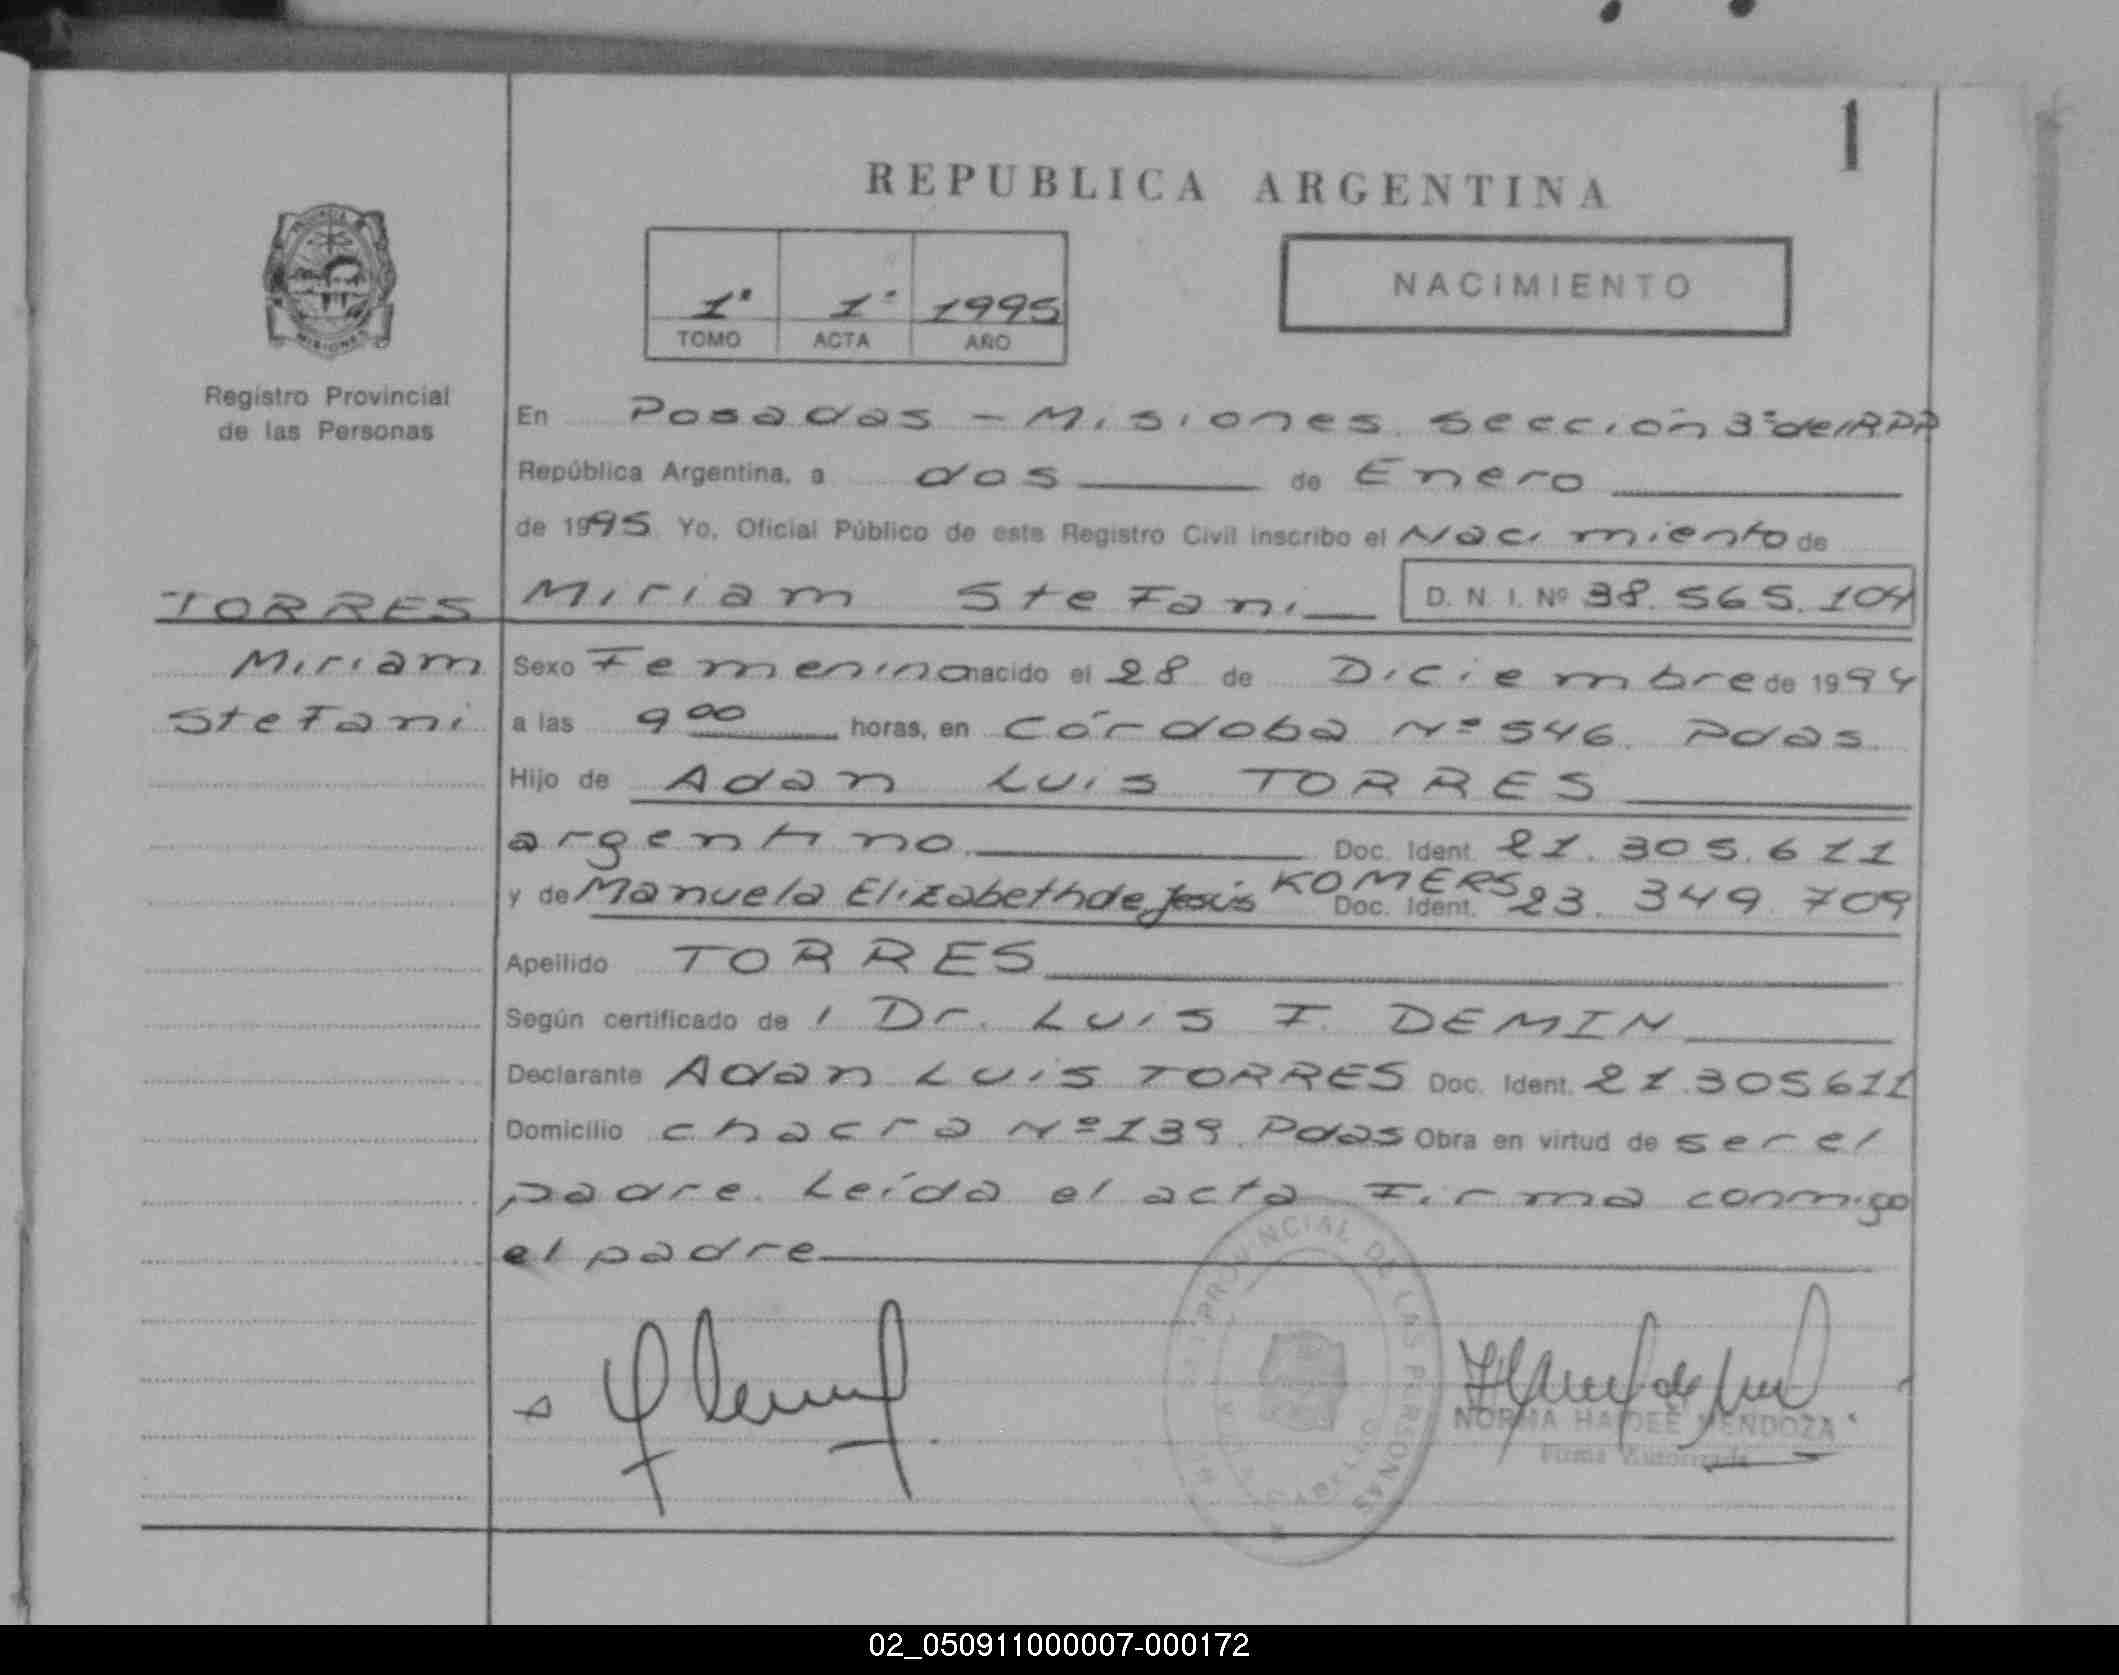 1
REPUBLICA ARGENTINA
1º 1º 1995
TOMO ACTA AÑO
NACIMIENTO
MISIONES
Registro Provincial
de las Personas
En Posadas - Misiones Sección 3º del RPP
República Argentina, a dos de Enero
de 1995. Yo, Oficial Público de este Registro Civil inscribo el Nacimiento de
Miriam Stefani D. N. I. Nº 38.565.104
TORRES
Miriam
Stefani
Sexo Femenino nacido el 28 de Diciembre de 1994
a las 9 00 horas, en Córdoba Nº 546. Pdas.
Hijo de Adan Luis TORRES
argentino Doc. Ident. 21.305.611
y de Manuela Elizabeth de Jesús KOMERS Doc. Ident. 23.349.709
Apellido TORRES
Según certificado de l Dr. Luis F. DEMIN
Declarante Adan Luis TORRES Doc. Ident. 21.305611
Domicilio chacra Nº 139. Pdas Obra en virtud de ser el
padre. Leída el acta Firma conmigo
el padre
PROVINCIAL DE LAS PERSONAS
NORMA HAIDEE MENDOZA
Firma Autorizada
02_050911000007-000172